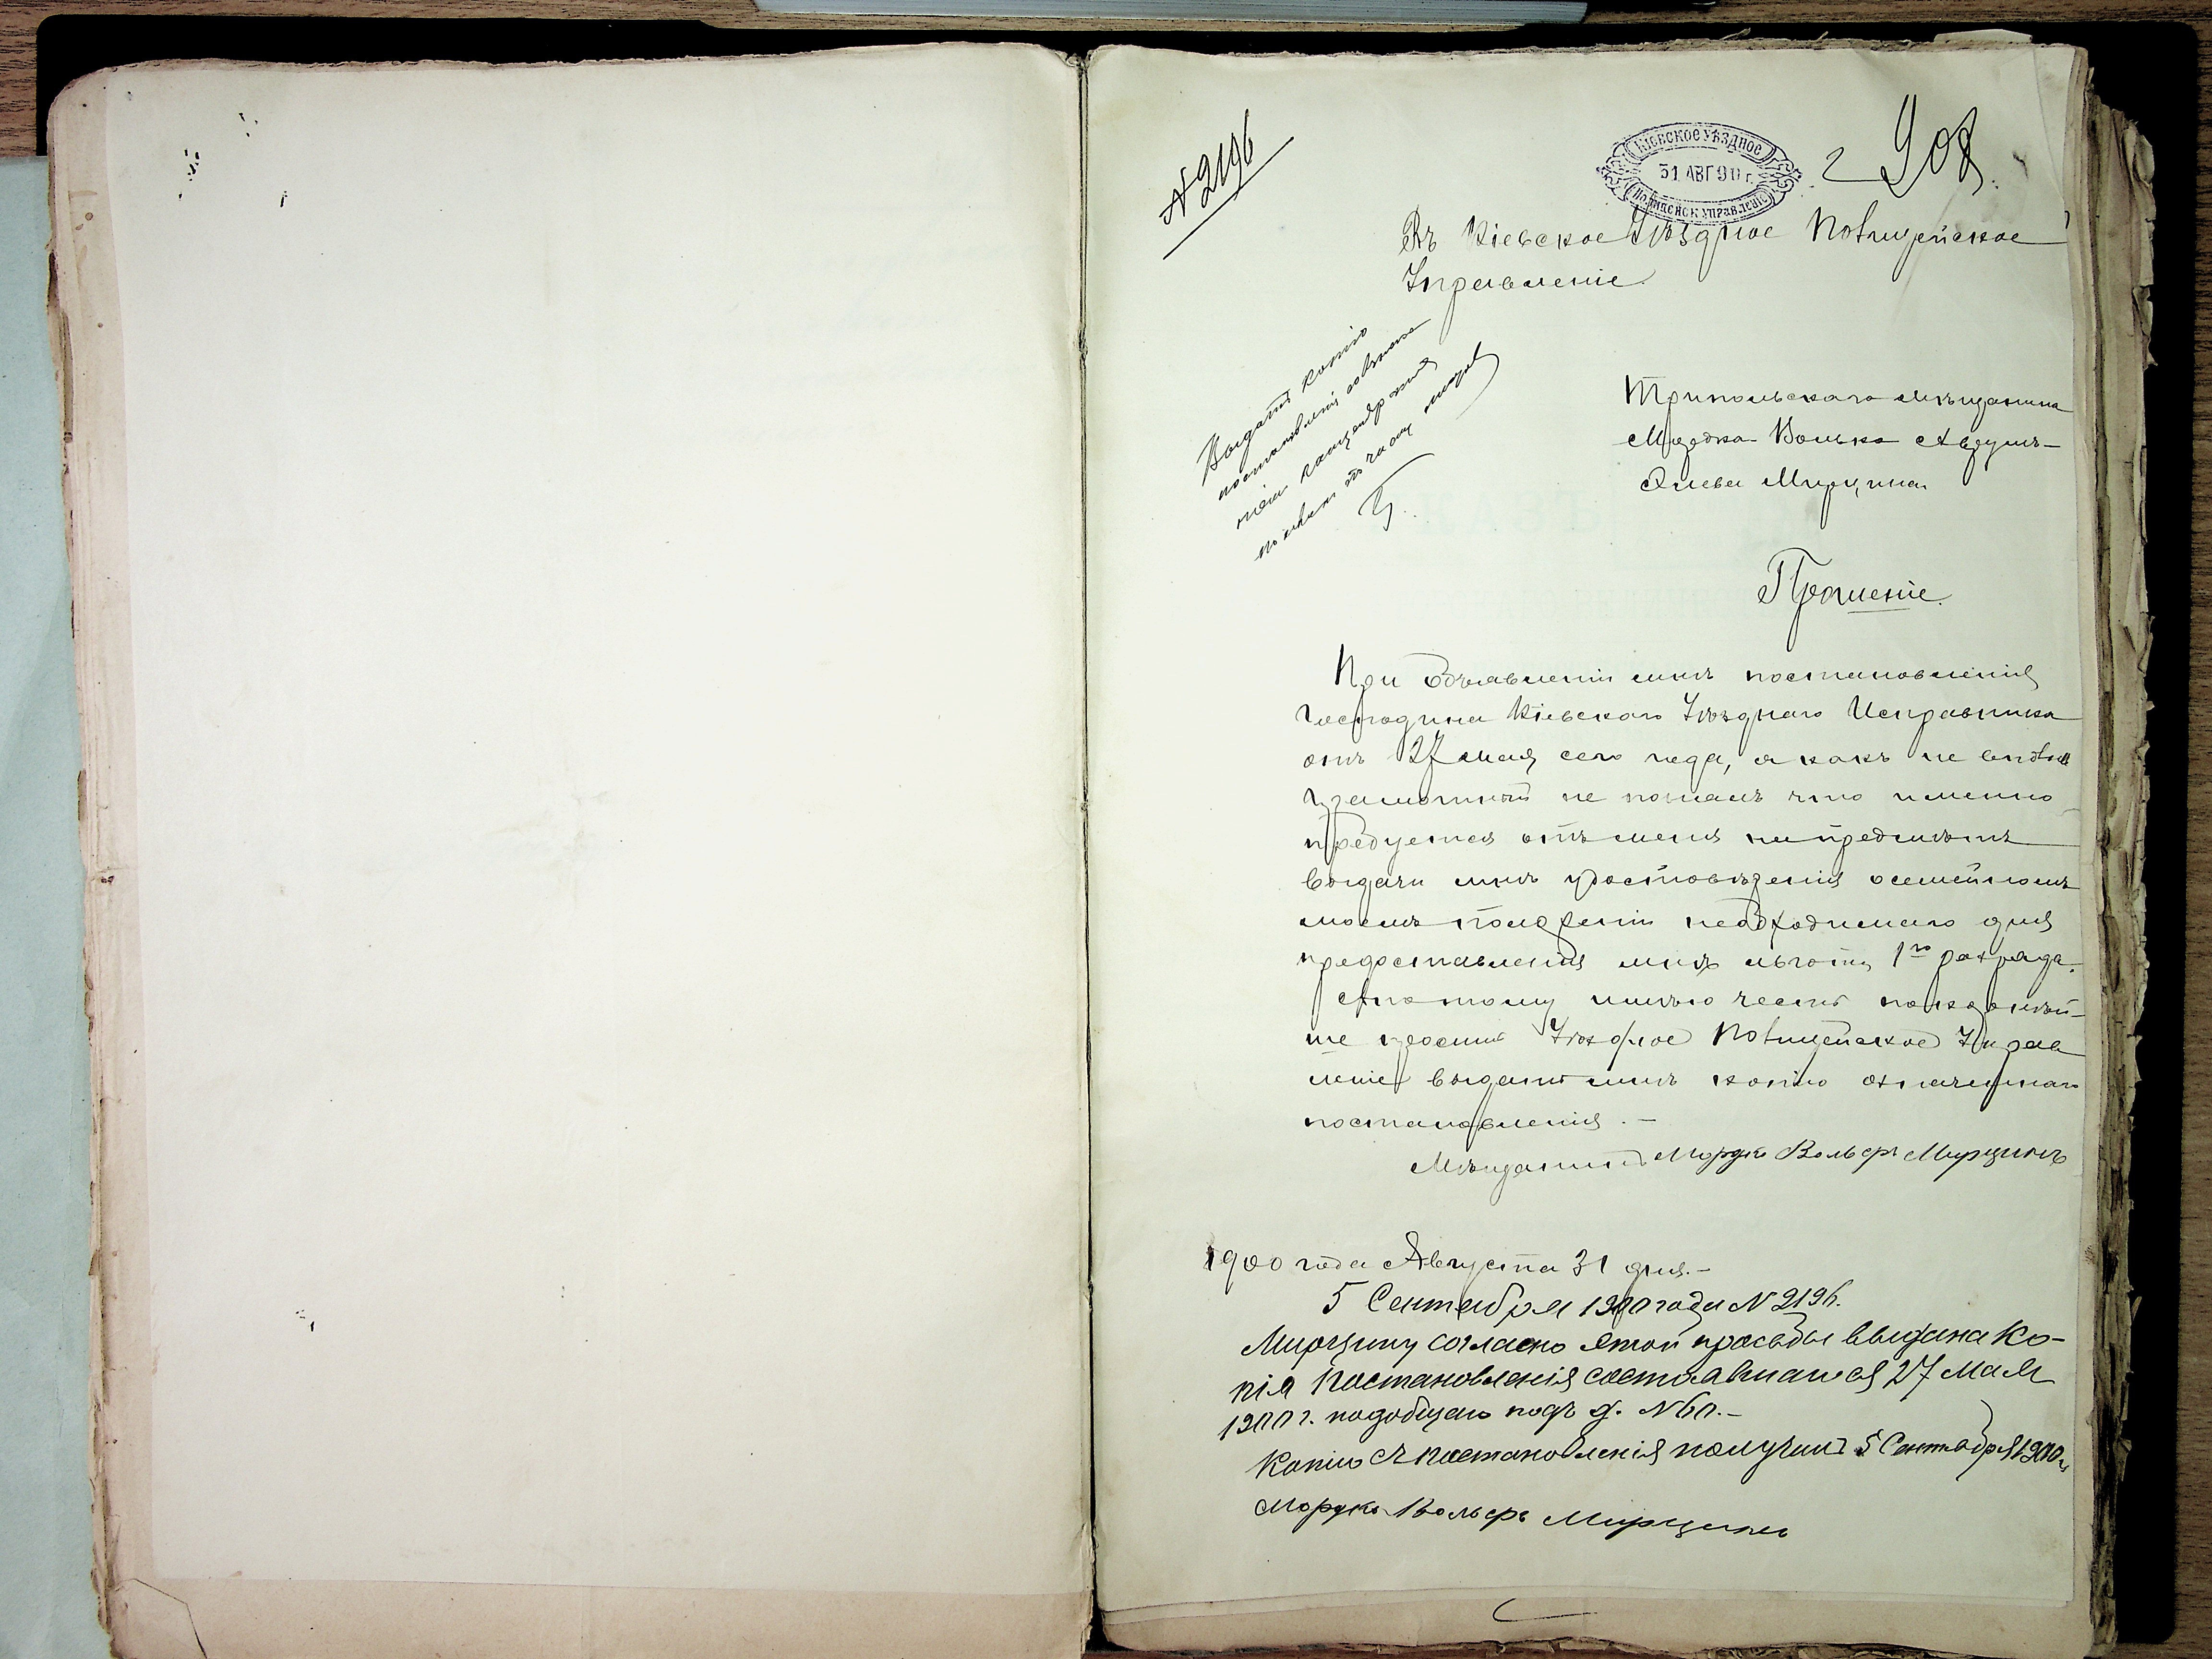 № 2196
КІЕВСКОЕ УѢЗДНОЕ
31 АВГ 90 г.
ПОЛИЦЕЙСК УПРАВЛЕНІЕ
908
Въ Кіевское Уѣздное Полицейское
Управленіе.
Выдать копію
постановленія
Трипольскаго мѣщанина
Мордка Волька Авдумъ-
Мирцина
Прошеніе.
При объявленіи мнѣ постановленія
Господина Кіевскаго Уѣзднаго Исправника
отъ 27 мая сего года, я какъ не вполнѣ
грамотный не понялъ что именно
требуется отъ меня на предметъ
выдачи мнѣ удостовѣренія о семейномъ
моемъ положеніи необходимаго для
предоставленія мнѣ льготы 1го разряда.
А потому имѣю честь покорнѣй-
ше просить Уѣздное Полицейское Управ
леніе выдать мнѣ копію означеннаго
постановленія. —
Мѣщанинъ Мордко Вольфъ Мирцинъ
1900 года Августа 31 дня. —
5 Сентября 1900 года № 2196.
Мирцину согласно этой просьбы выдана ко-
пія постановленія состоявшагося 27 Мая
1900 г. подъ д. № 60. —
Копію съ постановленія получилъ 5 Сентября 1900 г.
Мордко Вольфъ Мирцинъ